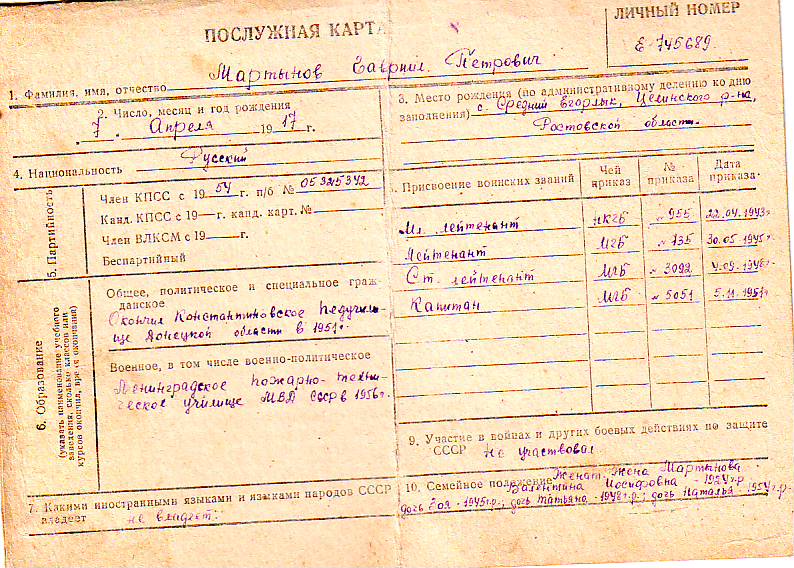 ПОСЛУЖНАЯ КАРТА
ЛИЧНЫЙ НОМЕР
Е-745689.
1. Фамилия, имя, отчество Мартынов Гавриил Петрович
2. Число, месяц и год рождения
7 Апреля 1917 г.
3. Место рождения (по административному делению ко дню
заполнения) с. Средний Егорлык, Целинского р-на,
Ростовской области.
4. Национальность Русский
5. Партийность
Член КПСС с 1954 г. п/б № 05325342
Канд. КПСС с 19— г. канд. карт. №—
Член ВЛКСМ с 19— г.
Беспартийный
6. Образование
(указать наименование учебного
заведения, сколько классов или
курсов окончил, вре я окончания)
Общее, политическое и специальное граж-
данское
Окончил Константиновское педучили-
ще Донецкой области в 1951г.
Военное, в том числе военно-политическое
Ленинградское пожарно-техни-
ческое училище МВД СССР в 1956г.
7. Какими иностранными языками и языками народов СССР
владеет не владеет.
. Присвоение воинских званий Чей приказ № приказа Дата приказа
Мл. лейтенант НКГБ №955 22.04.1943г
Лейтенант МГБ №135 30.05.1945г
Ст. лейтенант МГБ №3092 9.09.1948г.
Капитан МГБ №5051 5.11.1951г.
9. Участие в войнах и других боевых действиях по защите
СССР Не участвовал
10. Семейное положение Женат. Жена Мартынова
Валентина Иосифовна - 1924г.р
дочь Зоя - 1945г.р.; дочь Татьяна - 1948г.р.; дочь Наталья - 1954г.р.